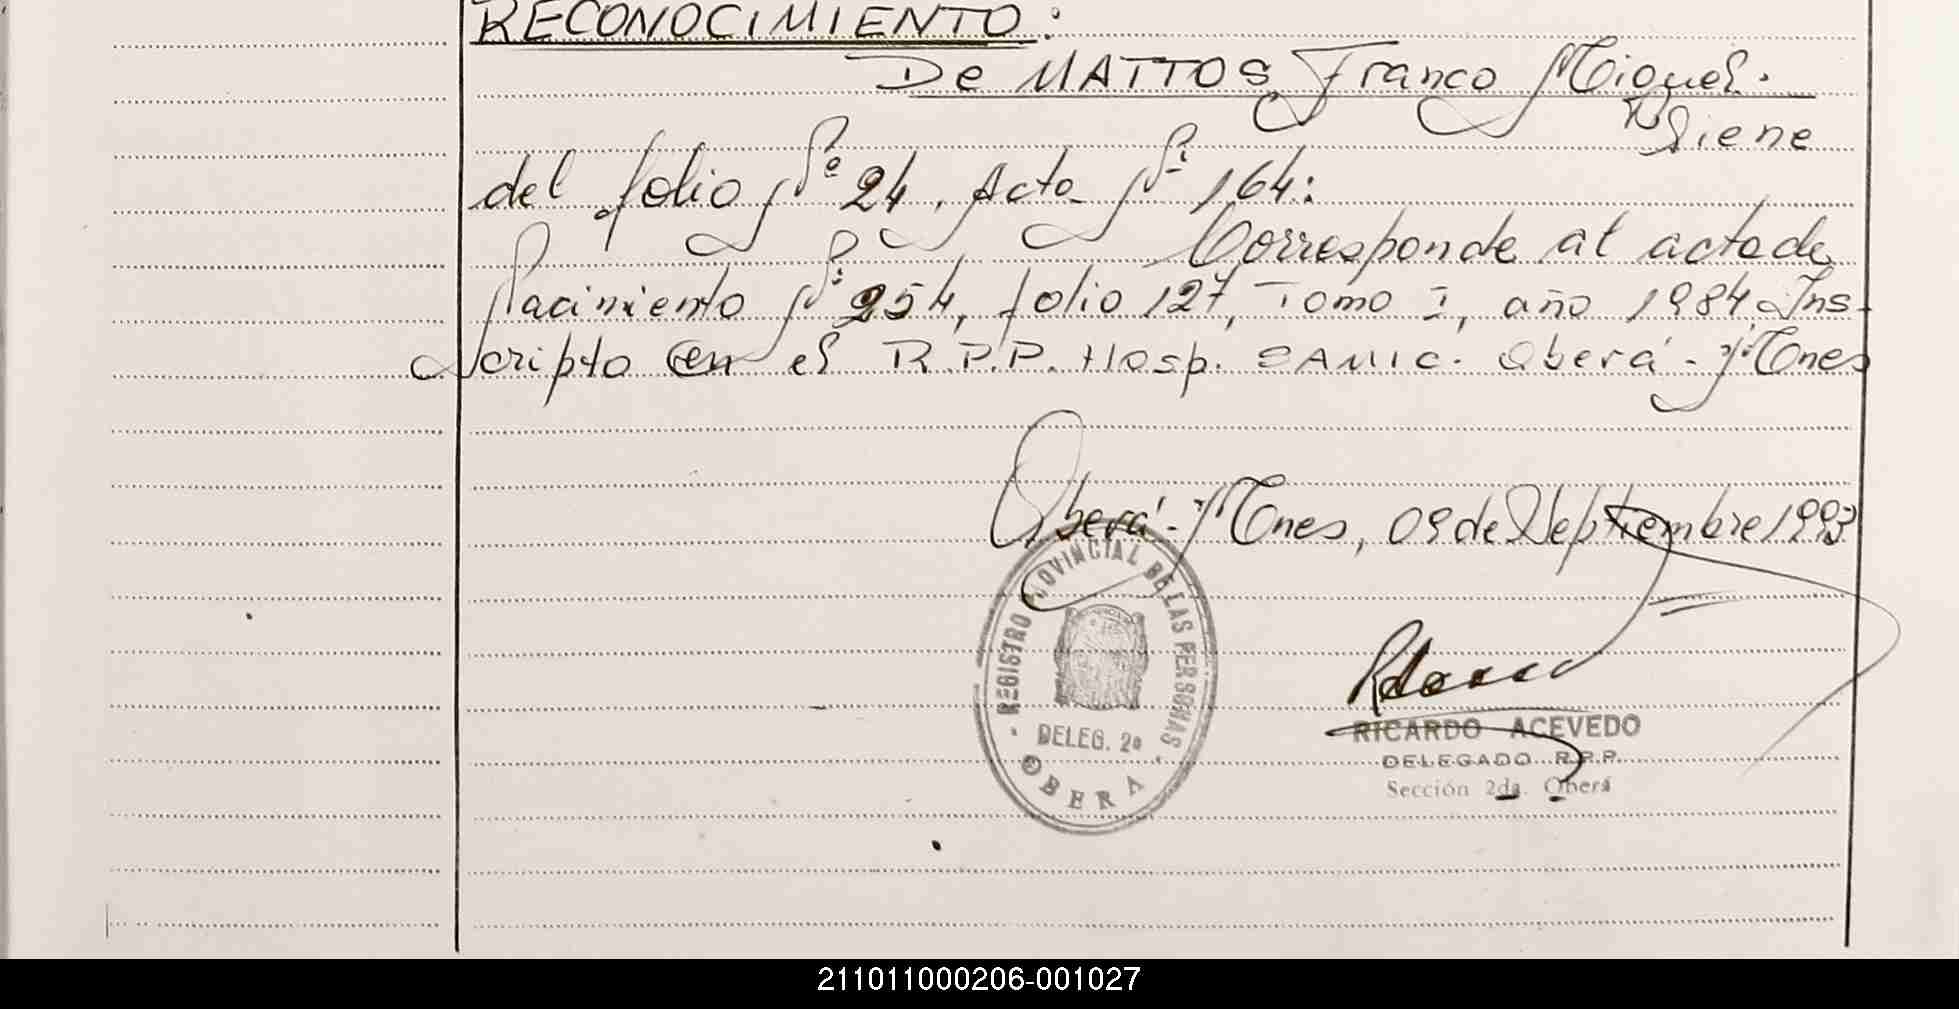 RECONOCIMIENTO:
De MATTOS, Franco Miguel.
Viene
del folio Nº 24, Acta Nº 164:
Corresponde al acta de
Nacimiento Nº 254, folio 127, Tomo I, año 1984, Ins-
cripto en el R.P.P. Hosp. SAMIC. Oberá - Mnes
Oberá - Mnes, 09 de Septiembre 1993
REGISTRO PROVINCIAL DE LAS PERSONAS
DELEG. 2ª
OBERA
RICARDO ACEVEDO
DELEGADO R.P.P.
Sección 2da. Oberá
211011000206-001027